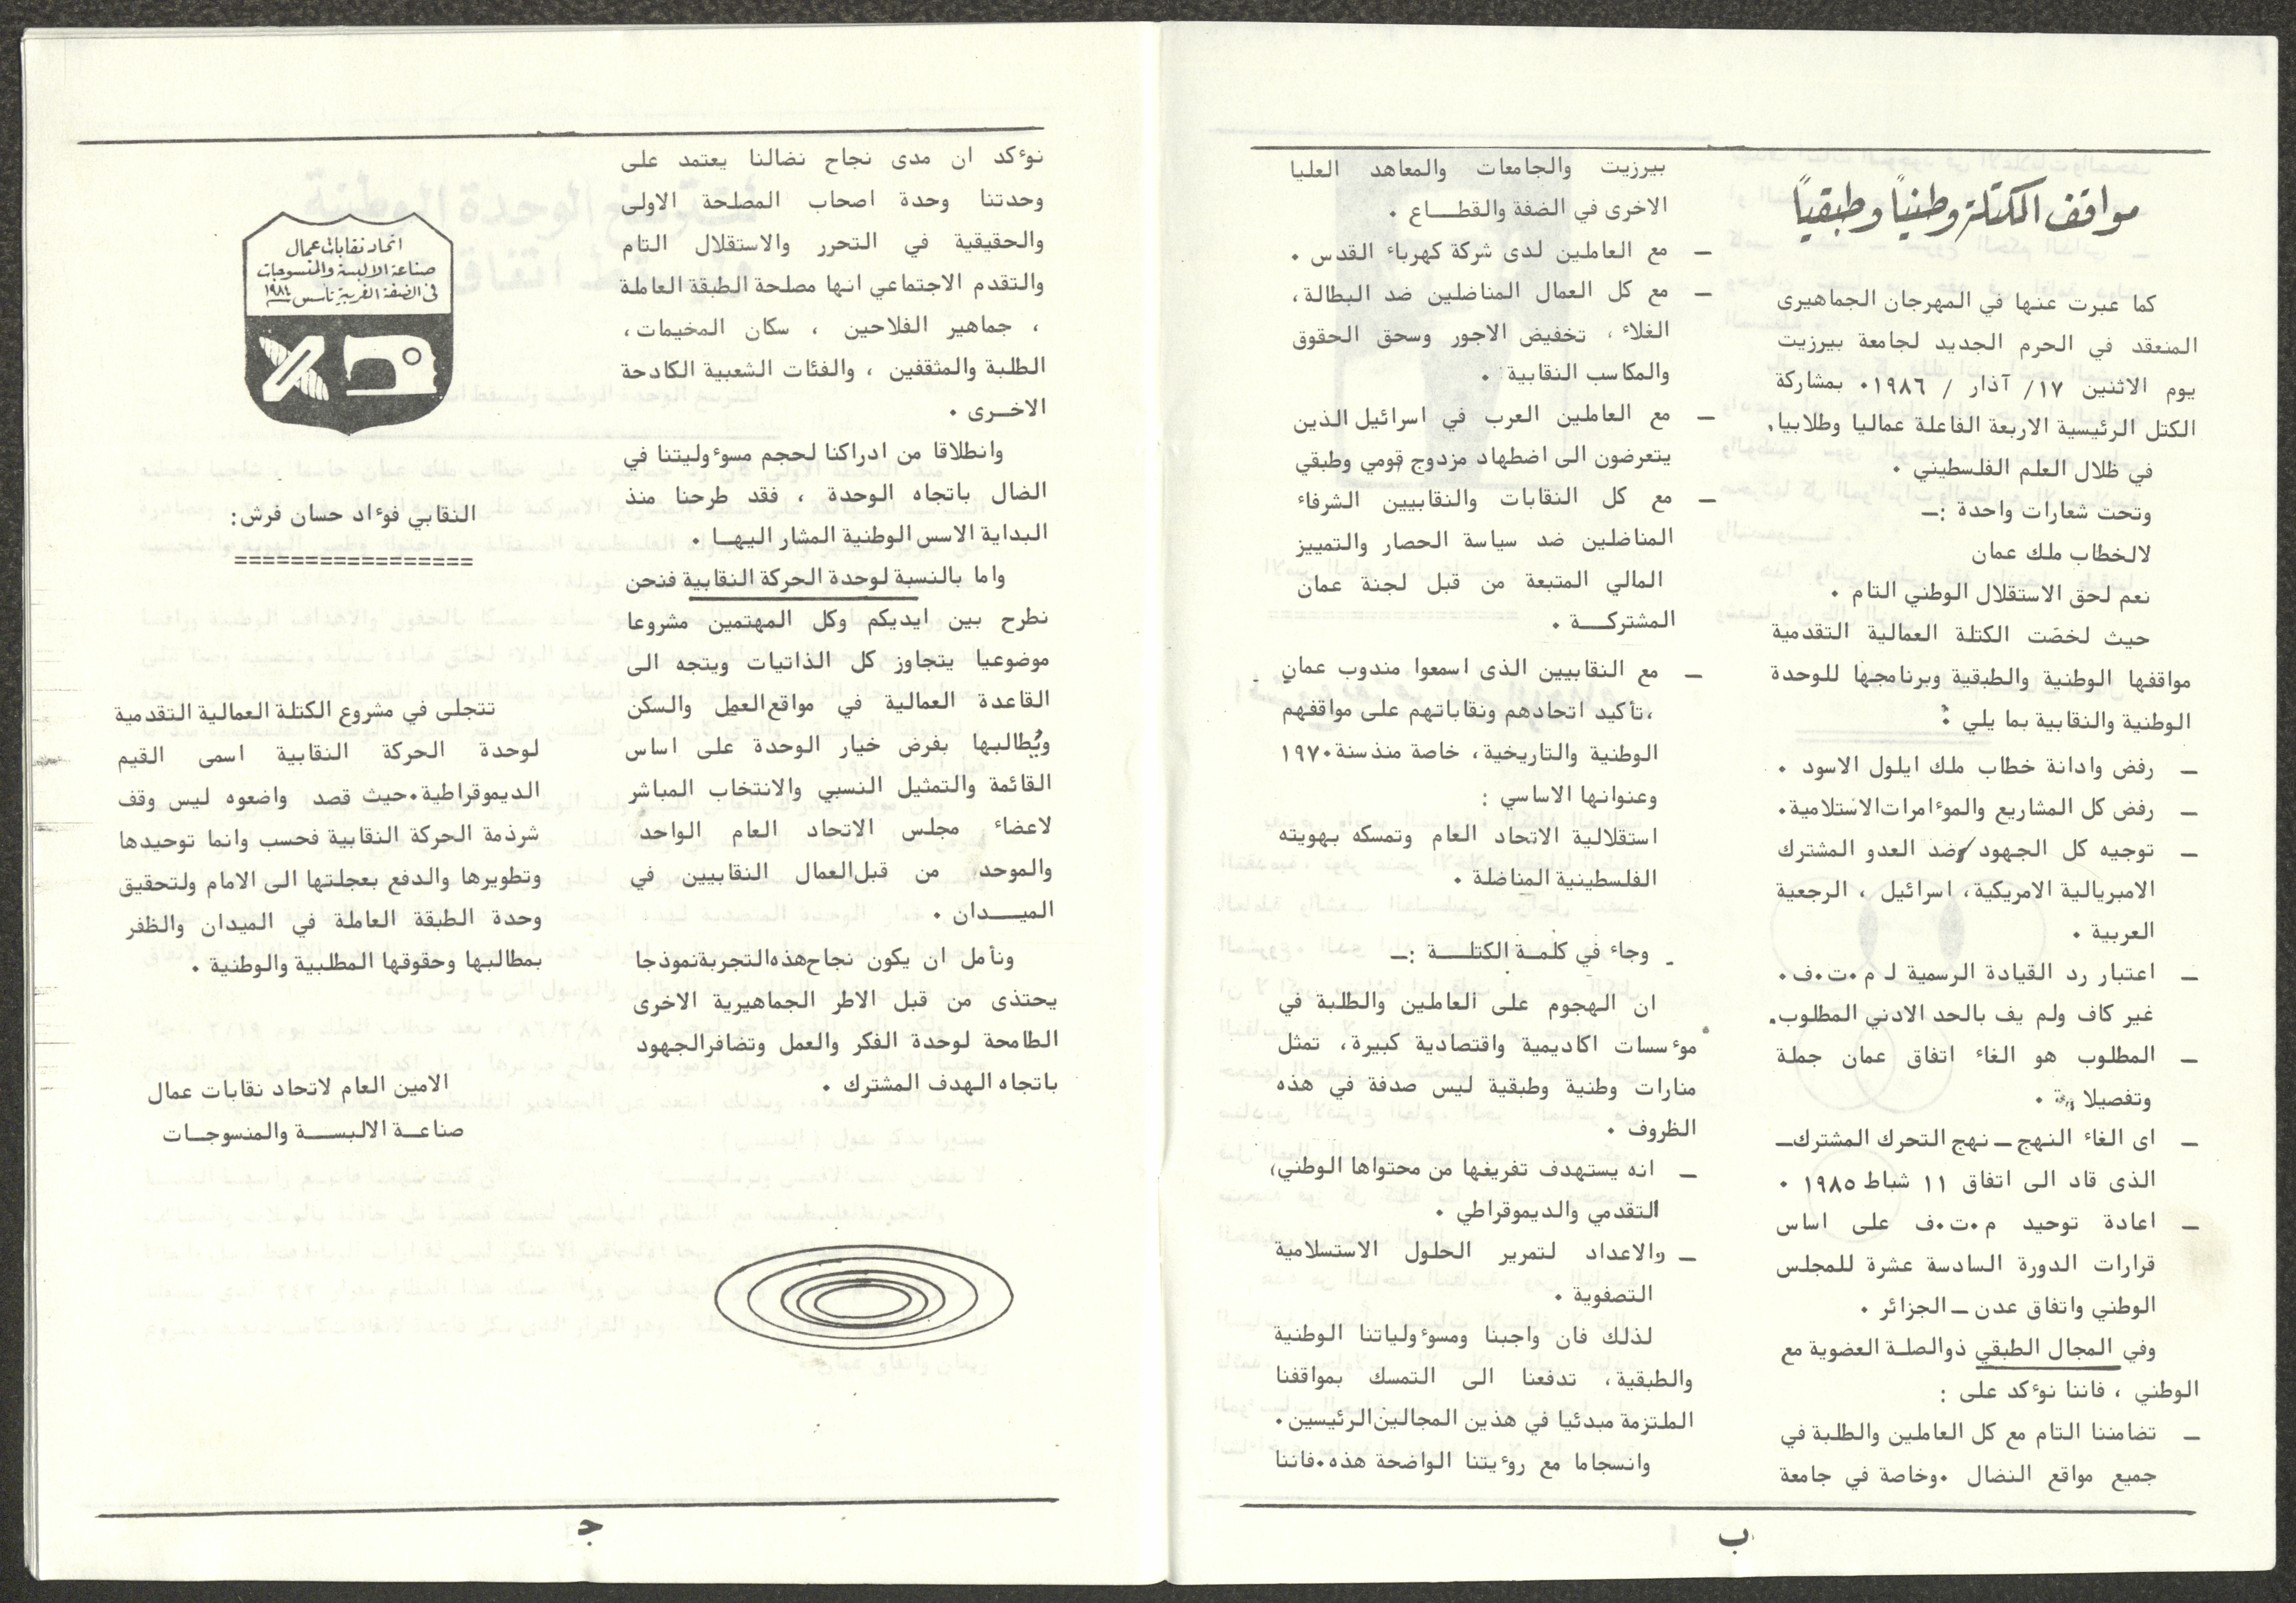 مواقف الكتلة وطنياً وطبقياً
كما عبرت عنها في المهرجان الجماهيرى
المنعقد في الحرم الجديد لجامعة بيرزيت
يوم الاثنين ١٧/ آذار / ١٩٨٦٠ بمشاركة
الكتل الرئيسية الاربعة الفاعلة عماليا وطلابيا،
في ظلال العلم الفلسطيني ٠
وتحت شعارات واحدة :ـ
لالخطاب ملك عمان
نعم لحق الاستقلال الوطني التام ٠
حيث لخصّت الكتلة العمالية التقدمية
مواقفها الوطنية والطبقية وبرنامجها للوحدة
الوطنية والنقابية بما يلي :
ـ رفض وادانة خطاب ملك ايلول الاسود ٠
ـ رفض كل المشاريع والموٴامرات الاستلامية٠
ـ توجيه كل الجهود ضد العدو المشترك
الامبريالية الامريكية، اسرائيل ، الرجعية
العربية ٠
ـ اعتبار رد القيادة الرسمية لـ م٠ت٠ف٠
غير كاف ولم يف بالحد الادني المطلوب٠
ـ المطلوب هو الغاء اتفاق عمان جملة
وتفصيلا ٠
ـ اى الغاء النهج ـ نهج التحرك المشترك ـ
الذى قاد الى اتفاق ١١ شباط ١٩٨٥ ٠
ـ اعادة توحيد م٠ت٠ف على اساس
قرارات الدورة السادسة عشرة للمجلس
الوطني واتفاق عدن ـ الجزائر ٠
وفي المجال الطبقي ذوالصلة العضوية مع
الوطني ، فاننا نوٴكد على :
ـ تضامننا التام مع كل العاملين والطلبة في
جميع مواقع النضال ٠وخاصة في جامعة
بيرزيت والجامعات والمعاهد العليا
الاخرى في الضفة والقطـــاع ٠
ـ مع العاملين لدى شركة كهرباء القدس ٠
ـ مع كل العمال المناضلين ضد البطالة،
الغلاء ، تخفيض الاجور وسحق الحقوق
والمكاسب النقابية ٠
ـ مع العاملين العرب في اسرائيل الذين
يتعرضون الى اضطهاد مزدوج قومي وطبقي
ـ مع كل النقابات والنقابيين الشرفاء
المناضلين ضد سياسة الحصار والتمييز
المالي المتبعة من قبل لجنة عمان
المشتركـــة ٠
ـ مع النقابيين الذى اسمعوا مندوب عمان
،تأكيد اتحادهم ونقاباتهم على مواقفهم
الوطنية والتاريخية، خاصة منذ سنة ١٩٧٠
وعنوانها الاساسي :
استقلالية الاتحاد العام وتمسكه بهويته
الفلسطينية المناضلة ٠
ـ وجاء في كلمـة الكتلـــة :ـ
ان الهجوم على العاملين والطلبة في
موٴسسات اكاديمية واقتصادية كبيرة، تمثل
منارات وطنية وطبقية ليس صدفة في هذه
الظروف ٠
ـ انه يستهدف تفريغها من محتواها الوطني،
التقدمي والديموقراطي ٠
ـ والاعداد لتمرير الحلول الاستسلامية
التصفوية ٠
لذلك فان واجبنا ومسوٴولياتنا الوطنية
والطبقية، تدفعنا الى التمسك بمواقفنا
الملتزمة مبدئيا في هذين المجالين الرئيسين٠
وانسجاما مع روٴيتنا الواضحة هذه٠فاننا
ب
نوٴكد ان مدى نجاح نضالنا يعتمد على
وحدتنا وحدة اصحاب المصلحة الاولى
والحقيقية في التحرر والاستقلال التام
والتقدم الاجتماعي انها مصلحة الطبقة العاملة
، جماهير الفلاحين ، سكان المخيمات،
الطلبة والمثقفين ، والفئات الشعبية الكادحة
الاخــرى ٠
وانطلاقا من ادراكنا لحجم مسوٴوليتنا في
الضال باتجاه الوحدة ، فقد طرحنا منذ
البداية الاسس الوطنية المشار اليهــا ٠
واما بالنسبة لوحدة الحركة النقابية فنحن
نطرح بين ايديكم وكل المهتمين مشروعا
موضوعيا يتجاوز كل الذاتيات ويتجه الى
القاعدة العمالية في مواقع العمل والسكن
ويُطالبها بفرض خيار الوحدة على اساس
القائمة والتمثيل النسبي والانتخاب المباشر
لاعضاء مجلس الاتحاد العام الواحد
والموحد من قبل العمال النقابيين في
الميـــدان ٠
ونأمل ان يكون نجاح هذه التجربة نموذجا
يحتذى من قبل الاطر الجماهيرية الاخرى
الطامحة لوحدة الفكر والعمل وتضافر الجهود
باتجاه الهدف المشترك ٠
اتحاد نقابات عمال
صناعة الالبسة والمنسوجات
في الضفة الغربية تأسس ١٩٨٤
النقابي فوٴاد حسان فرش:
=================
تتجلى في مشروع الكتلة العمالية التقدمية
لوحدة الحركة النقابية اسمى القيم
الديموقراطية٠حيث قصد واضعوه ليس وقف
شرذمة الحركة النقابية فحسب وانما توحيدها
وتطويرها والدفع بعجلتها الى الامام ولتحقيق
وحدة الطبقة العاملة في الميدان والظفر
بمطالبها وحقوقها المطلبية والوطنية ٠
الامين العام لاتحاد نقابات عمال
صناعـة الالبســـة والمنسوجـات
ج